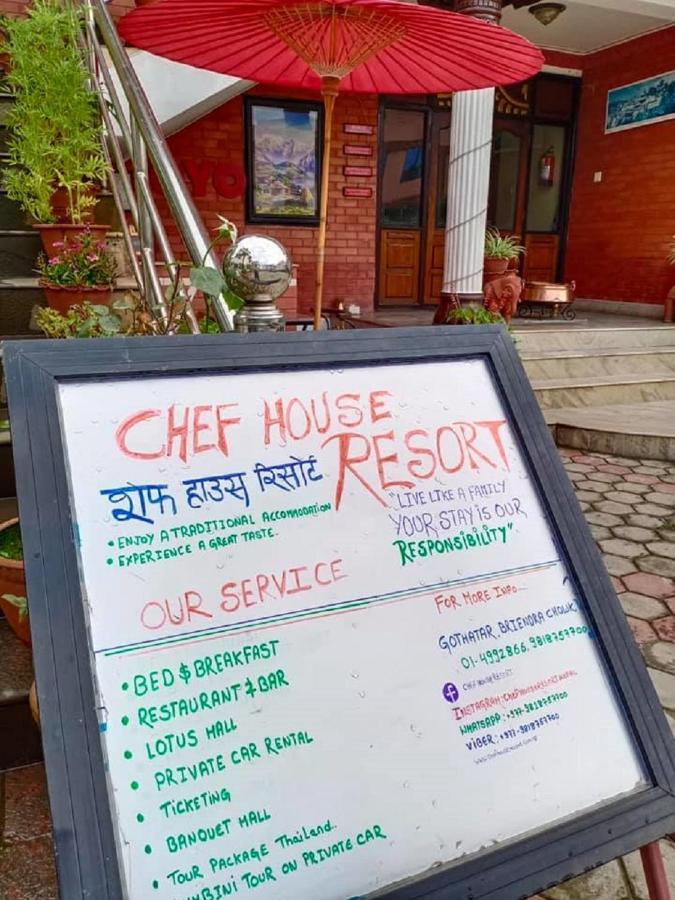 CHEF HOUSE
RESORT
शेफ हाउस रिसोर्ट
• ENJOY A TRADITIONAL ACCOMMODATION
• EXPERIENCE A GREAT TASTE.
"LIVE LIKE A FAMILY
YOUR STAY IS OUR
RESPONSIBILITY"
OUR SERVICE
• BED $ BREAKFAST
• RESTAURANT & BAR
• LOTUS HALL
• PRIVATE CAR RENTAL
• TICKETING
• BANQUET HALL
• TOUR PACKAGE Thailand..
TOUR ON PRIVATE CAR
FOR MORE INFO...
GOTHATAR, BRIENDRA CHOWK
01-4992866, 9818757700
CHEF HOUSE RESORT
INSTAGRAM:
WHATSAPP: +977-9818757700
VIBER: +977-9818757700